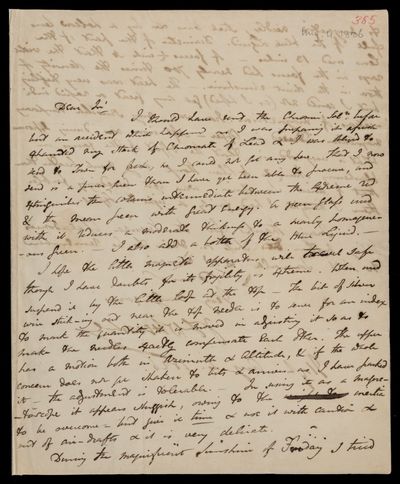 385
Aug. 9, 1836
Dear Sir
I should have sent the Chromic Sol.n before
but an accident which happened as I was preparing it afresh
exhausted my stock of Chromate of Lead & I was obliged to
send to Town for fresh, as I could not get any here. That I now
send is a purer green than I have yet been able to procure, and
extinguishes the colours intermediate between the extreme red
& the mean green with great energy. A green glass used
with it reduces a moderate thickness to a nearly homogene-
-ous green. I also add a bottle of the blue liquid.
I hope the little magnetic apparatus will travel safe
though I have doubts for its fragility is extreme. When used
suspend it by the little loop at the top — The bit of silver
wire sticking out near the top needle is to serve for an index
to mark the quantity it is moved in adjusting it so as to
make the needles exactly compensate each other. The upper
has a motion both in Azimuth & Altitude, & if the whole
concern does not get shaken to bits & arrives as I have packed
it — the adjustment is tolerable. In using it as a magne-
-toscope it appears sluggish, owing to the inertia
to be overcome — but give it time & use it with caution &
out of air-drafts & it is very delicate.
During the magnificent sunshine of Friday I tried